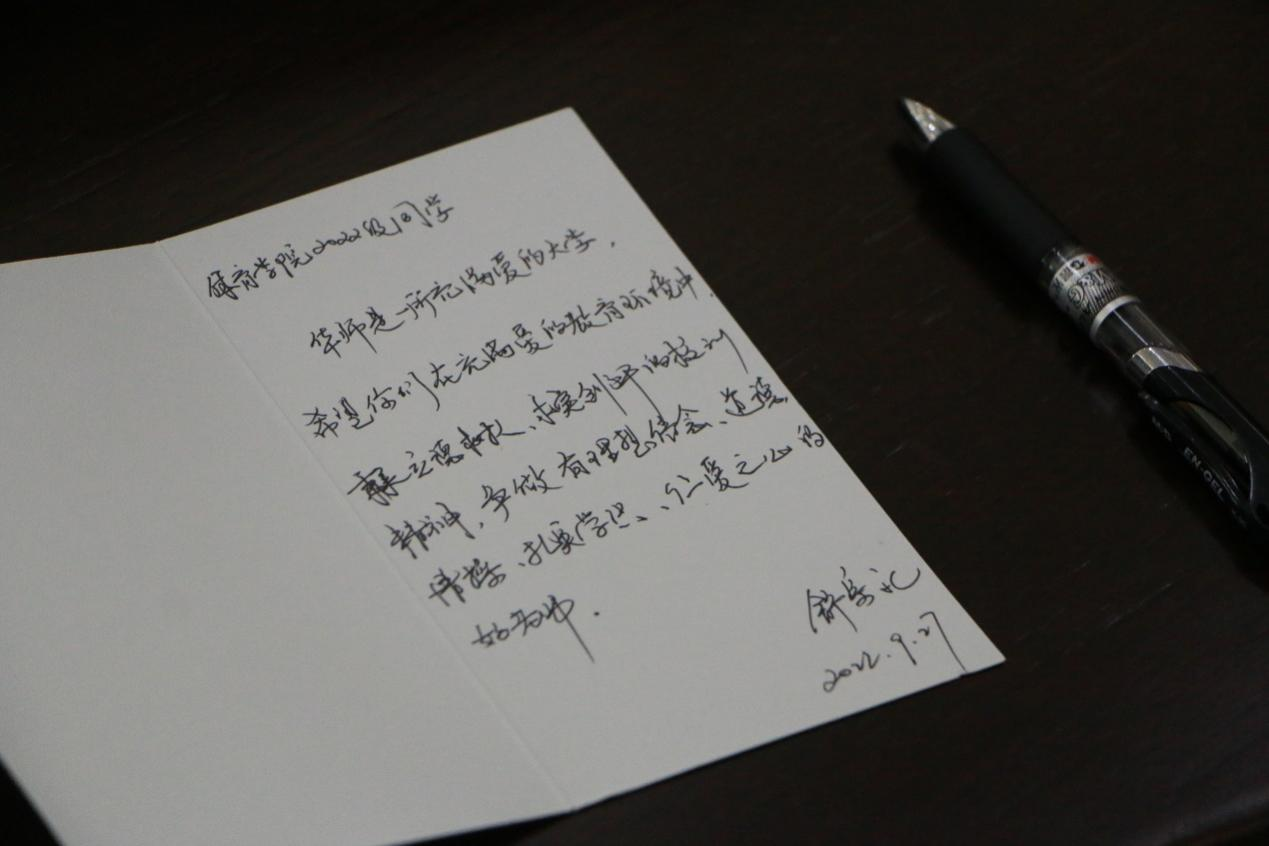 体育学院2022级同学
华师是一所充满爱的大学，
希望你们在充满爱的教育环境中，
秉立德树人、求实创新的校训
精神，争做有理想信念、道德
情操、扎实学识、仁爱之心的
好老师.
2022.9.27
EN-GEL